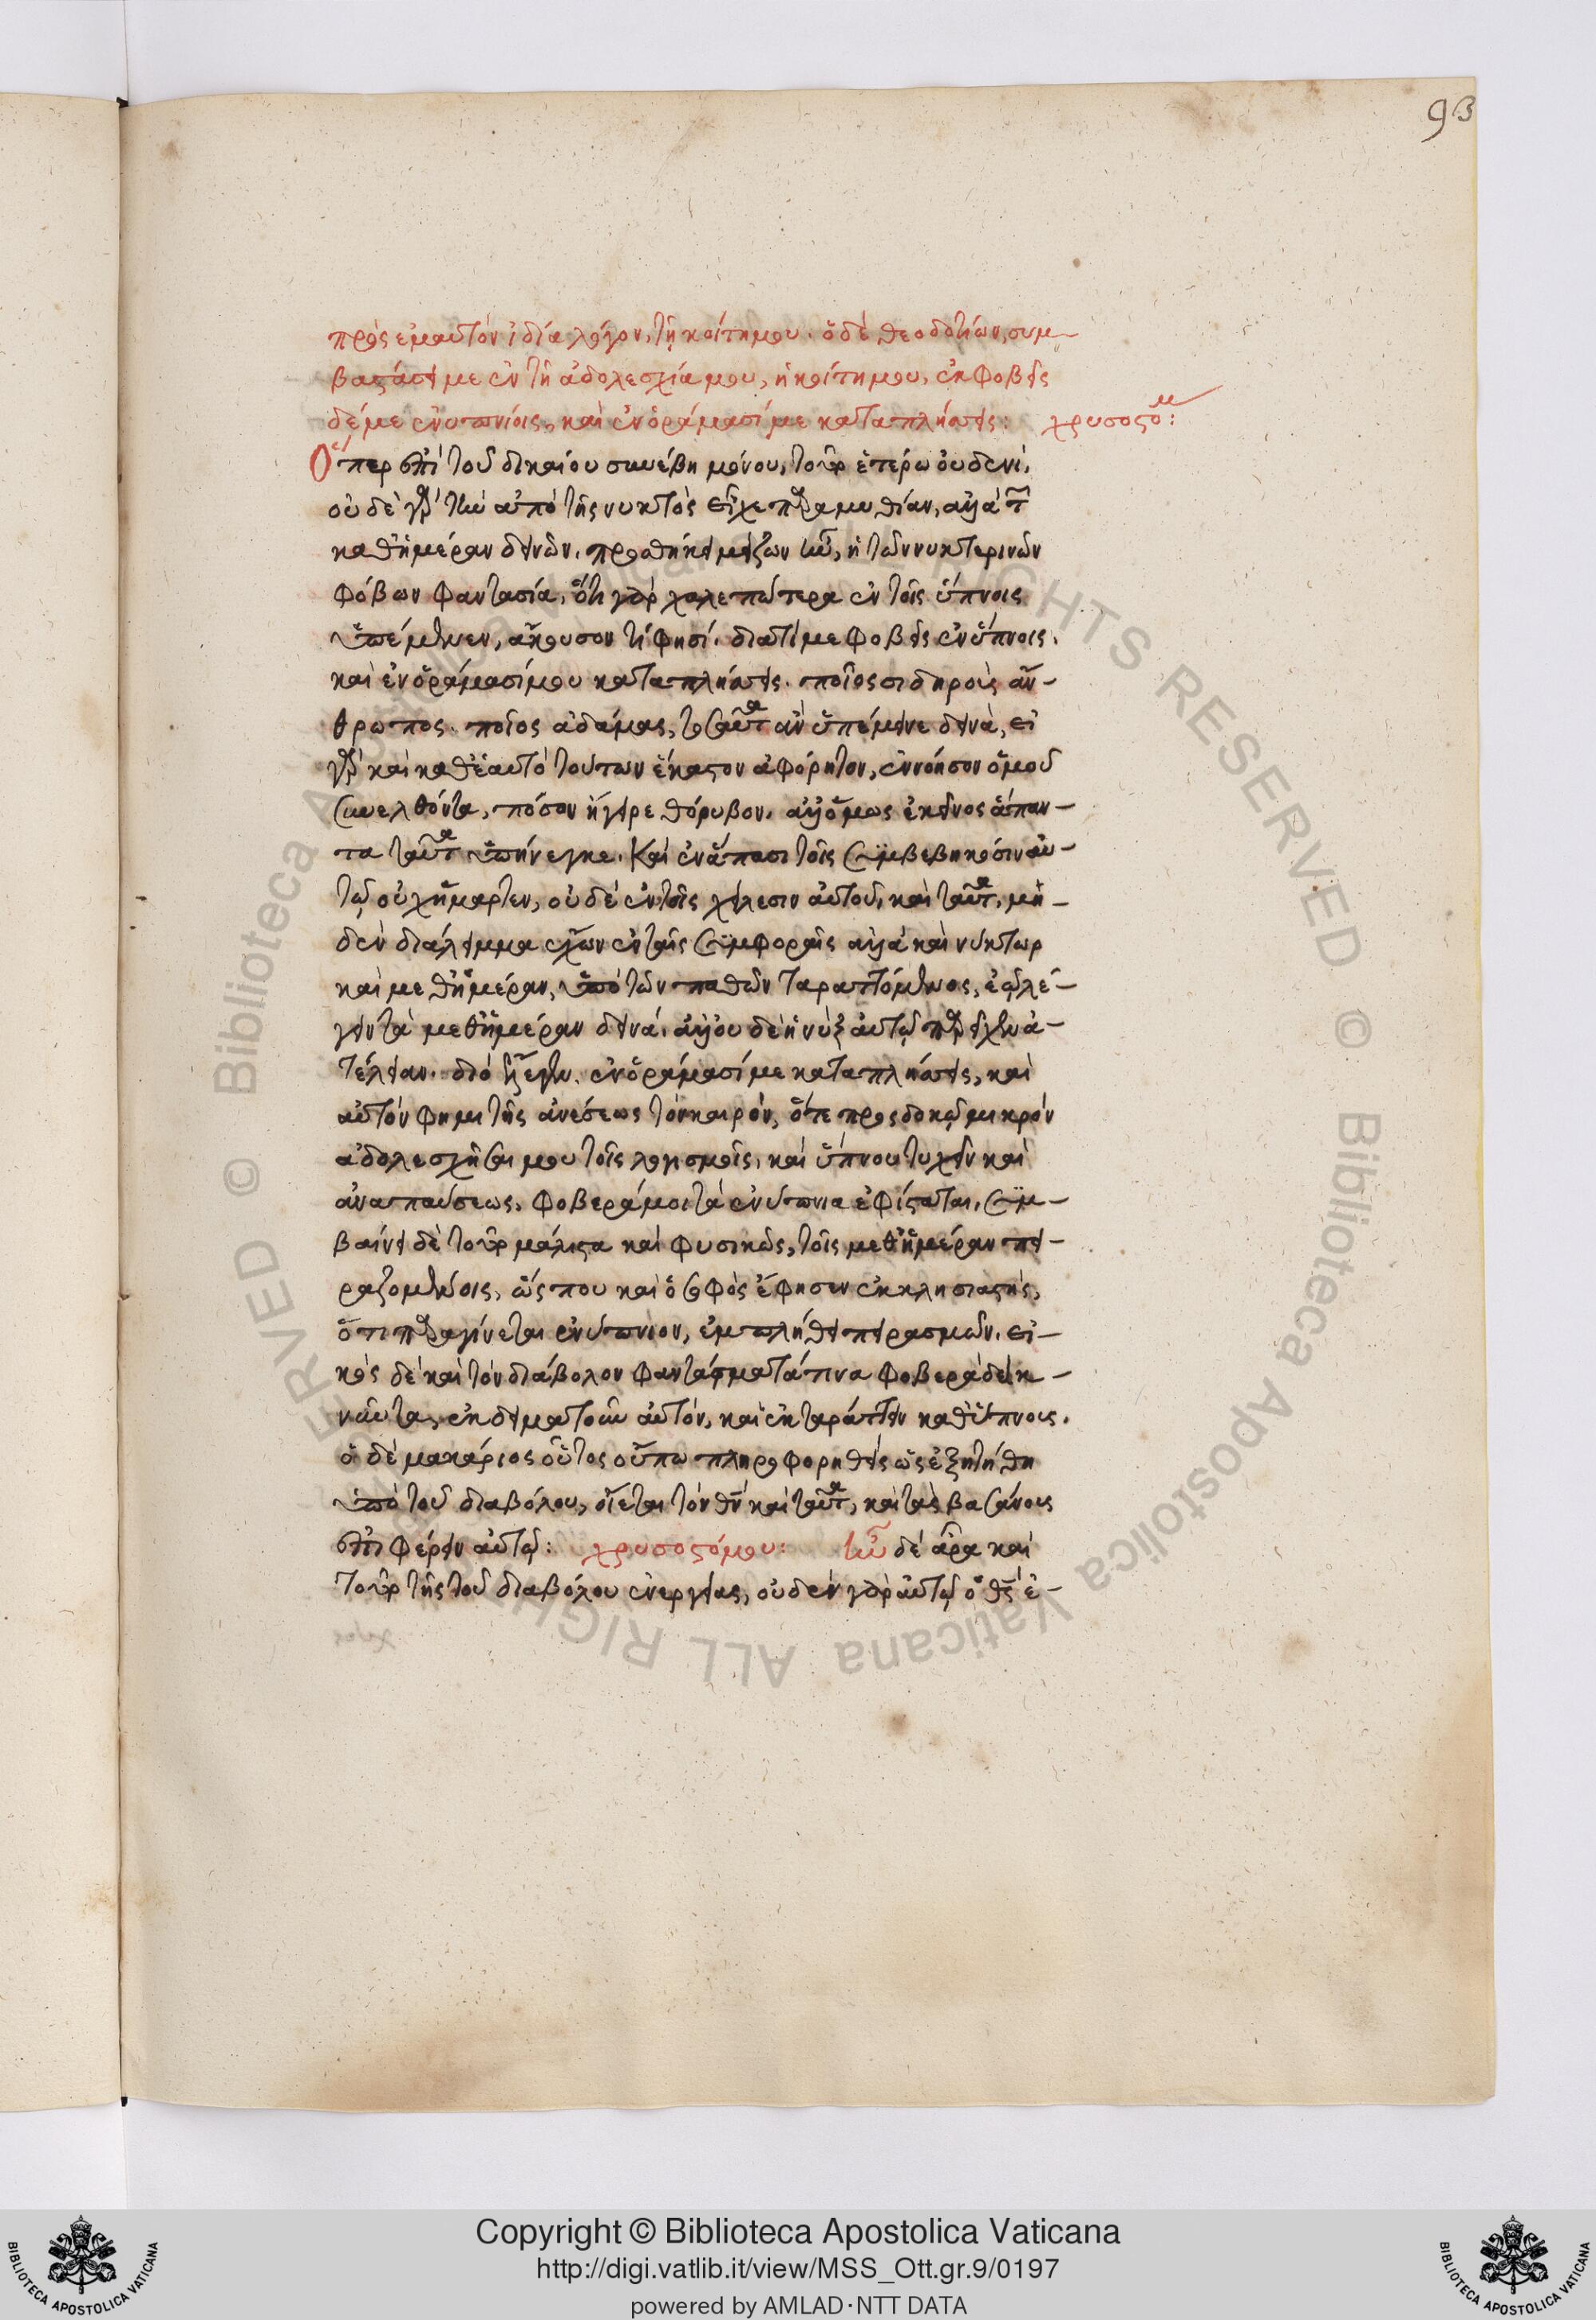 93
πρὸς ἐμαυτὸν ἰδία λόγον, τῇ κοίτη μου. ὁ δὲ θεοδοτίων, συμ-
βαστάσει με ἐν τῇ ἀδολεσχία μου, ἡ κοίτη μου, ἐκφοβεῖς
δέ με ἐνυπνίοις, καὶ ἐν ὁράμασί με καταπλήσσεις: χρυσοστομ:
Ὅπερ ἐπὶ τοῦ δικαίου συνέβη μόνου, τοῦτο ἑτέρω οὐδενί,
οὐδὲ γὰρ τὴν ἀπὸ τῆς νυκτὸς εἶχε παραμυθίαν, ἀλλὰ τῶν
καθἡμέραν δεινῶν, προσθήκη μείζων ἦν, ἡ τῶν νυκτερινῶν
φόβων φαντασία, ὅτι γὰρ χαλεπώτερα ἐν τοῖς ὕπνοις
ὑπέμενεν, ἄκουσον τί φησί. διατί με φοβεῖς ἐν ὕπνοις,
καὶ ἐν ὁράμασί μου καταπλήσσεις. ποῖος σιδηροῦς ἄν-
θρωπος. ποῖος ἀδάμας, τοσαῦτα ἂν ὑπέμεινε δεινὰ, εἰ
γὰρ καὶ καθἑαυτὸ τούτων ἕκαστον ἀφόρητον, ἐννόησον ὁμοῦ
συνελθόντα, πόσον ἤγειρε θόρυβον, ἀλλὅμως ἐκεῖνος ἅπαν-
τα ταῦτα ὑπήνεγκε. Καὶ ἐν ἅπασι τοῖς συμβεβηκόσιν αὐ-
τῷ οὐχ ἥμαρτεν, οὐδὲ ἐν τοῖς χείλεσιν αὐτοῦ, καὶ ταῦτα, μη-
δὲν διάλειμμα ἔχων ἐν ταῖς συμφοραῖς ἀλλὰ καὶ νύκτωρ
καὶ μεθἡμέραν, ὑπὸ τῶν παθῶν ταραττόμενος, ἐφλέ-
γην τὰ μεθἡμέραν δεινά. ἀλλ οὐδὲ ἡ νὺξ αὐτῷ παρεῖχεν ἀ-
τέλειαν. διὸ ἔλεγεν. ἐν ὁράμασί με καταπλήσσεις, καὶ
αὐτόν φημι τῆς ἀνέσεως τὸν καιρόν, ὅτε προσδοκῶ μικρόν
ἀδολεσχῆσαι μου τοῖς λογισμοῖς, καὶ ὕπνου τυχεῖν καὶ
ἀναπαύσεως, φοβερά μοι τὰ ἐνύπνια ἐφίσταται, συμ-
βαίνει δὲ τοῦτο μάλιστα καὶ φυσικῶς, τοῖς μεθἡμέραν πει-
ραζομένοις, ὥς που καὶ ὁ σοφὸς ἔφησεν ἐκκλησιαστής,
ὅτι παραγίνεται ἐνύπνιον, ἐμπλήθει πειρασμῶν. εἰ-
κὸς δὲ καὶ τὸν διάβολον φαντάσματά τινα φοβερὰ δεικ-
νῦντα, ἐκδειματοῦν αὐτόν, καὶ ἐκταράττειν καθ ὕπνους.
ὁ δὲ μακάριος οὗτος οὔπω πληροφορηθεὶς ὡς ἐξητήθη
ὑπὸ τοῦ διαβόλου, οἴεται τὸν θν̅ καὶ ταῦτα, καὶ τὰς βασάνους
ἐπιφέρειν αὐτῷ: χρυσοστόμου: ἦν δὲ ἄρα καὶ
τοῦτο τῆς τοῦ διαβόλου ἐνεργείας, οὐδὲν γὰρ αὐτῷ ὁ θς̅ ἐ-
Copyright © Biblioteca Apostolica Vaticana
http://digi.vatlib.it/view/MSS_Ott.gr.9/0197
powered by AMLAD·NTT DATA
BIBLIOTECA APOSTOLICA VATICANA
BIBLIOTECA APOSTOLICA VATICANA